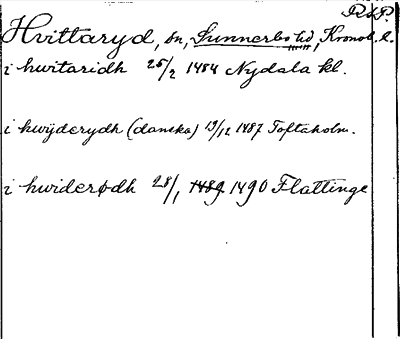 R&P.
Hvittaryd, sn, Sunnerbo hd, Kronob. l.
i hwitaridh 25/2 1454 Nydala kl.
i hwÿderydh (danska) 19/12 1487 Toftaholm.
i hwiderødh 28/1 1489 1490 Flattinge